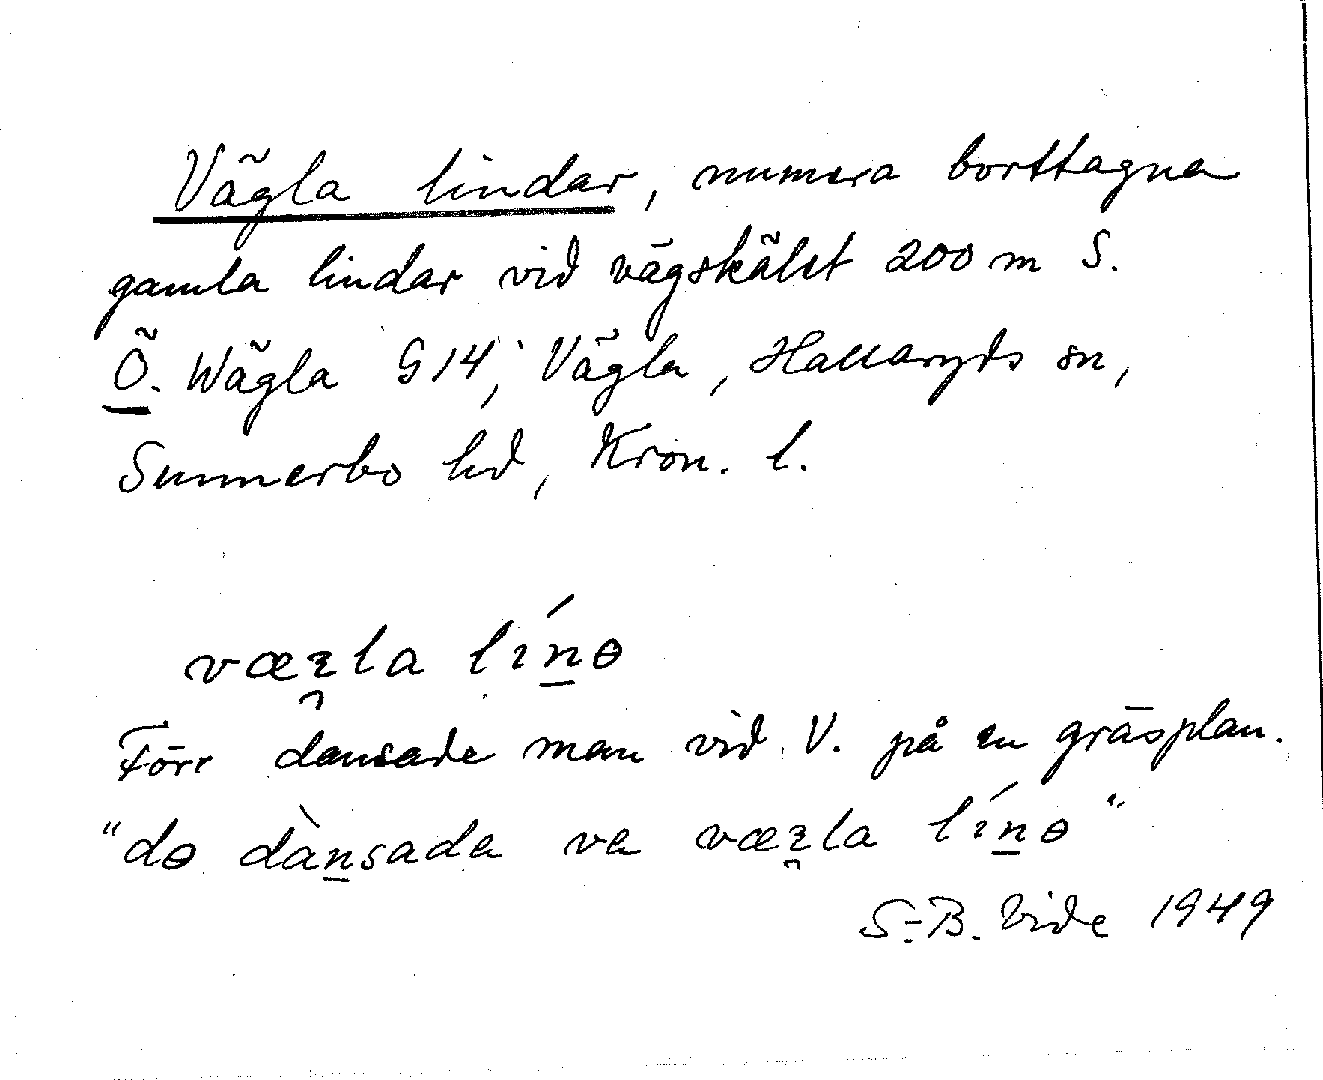 Vägla lindar, numera borttagna
gamla lindar vid vägskälet 200 m S.
Ö. Wägla G14; Vägla, Hallaryds sn,
Sunnerbo hd, Kron. l.
væꝛla línɵ
Förr dansade man vid V. på en gräsplan.
"dɵ dànsada ve væꝛla línɵ"
S.-B. Vide 1949